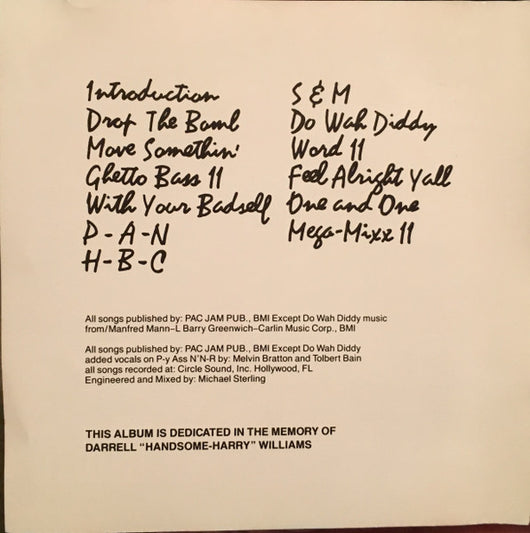 Introduction
Drop The Bomb
Move Somethin'
Ghetto Bass 11
With Your Badself
P-A-N
H-B-C
S & M
Do Wah Diddy
Word 11
Feel Alright Yall
One and One
Mega-Mixx 11
All songs published by: PAC JAM PUB., BMI Except Do Wah Diddy music
from/Manfred Mann–L Barry Greenwich–Carlin Music Corp., BMI
All songs published by: PAC JAM PUB., BMI Except Do Wah Diddy
added vocals on P-y Ass N'N-R by: Melvin Bratton and Tolbert Bain
all songs recorded at: Circle Sound, Inc. Hollywood, FL
Engineered and Mixed by: Michael Sterling
THIS ALBUM IS DEDICATED IN THE MEMORY OF
DARRELL "HANDSOME-HARRY" WILLIAMS